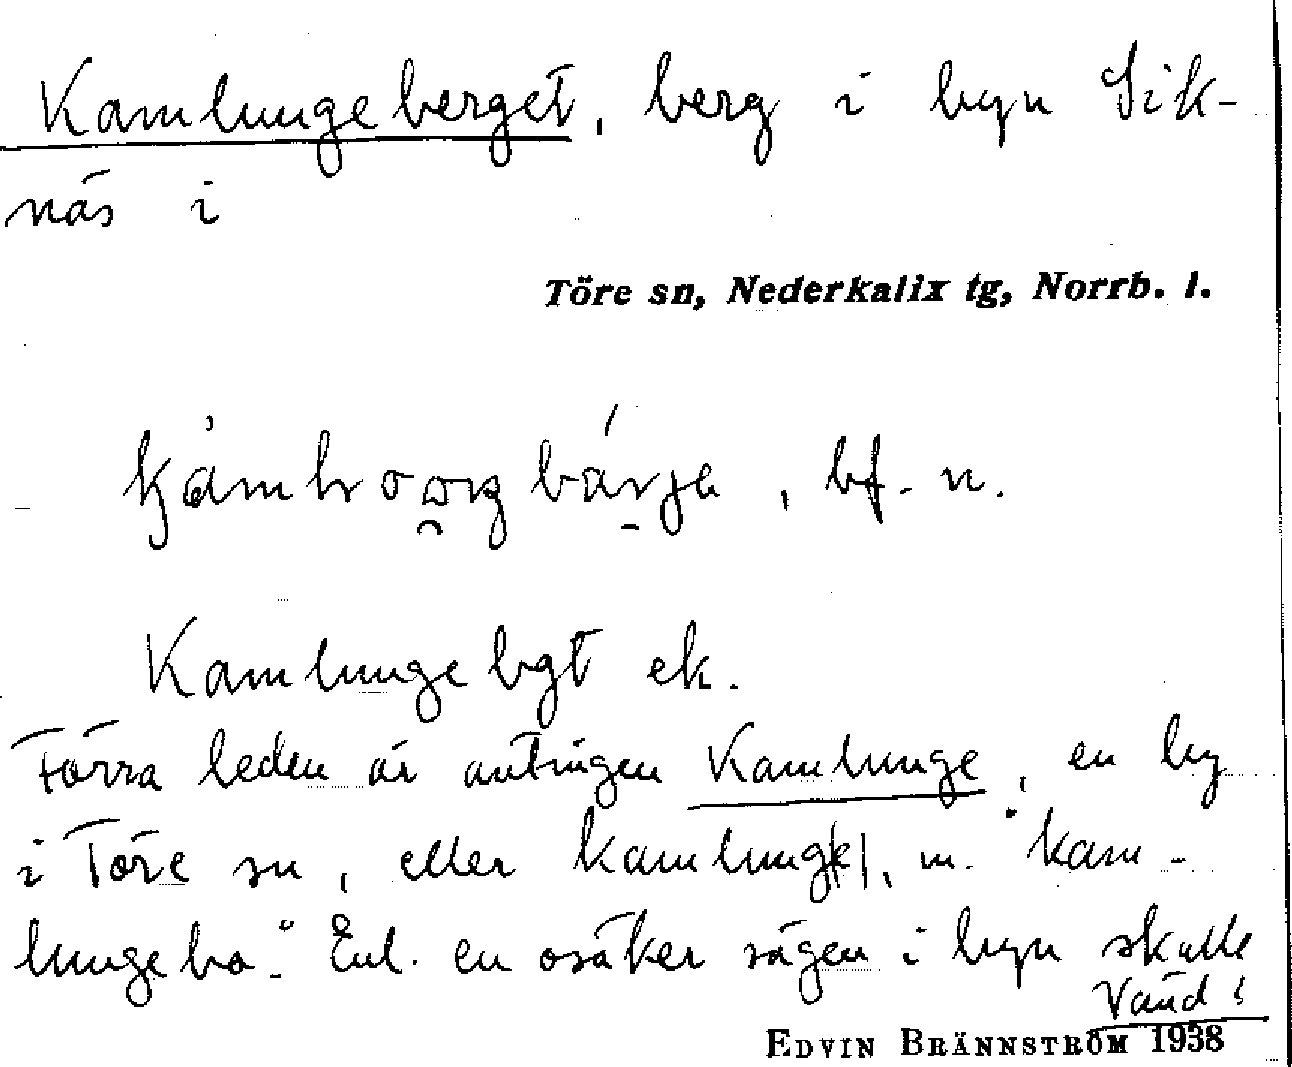 Kamlungeberget, berg i byn Sik-
näs i
Töre sn, Nederkalix tg, Norrb. l.
, bf. n.
Kamlungebgt ek.
Förra leden är antingen Kamlunge, en by
i Töre sn, eller kamlung(e), m. "kam-
lungebo." Enl. en osäker sägen i byn skulle
Vänd!
EDVIN BRÄNNSTRÖM 1938